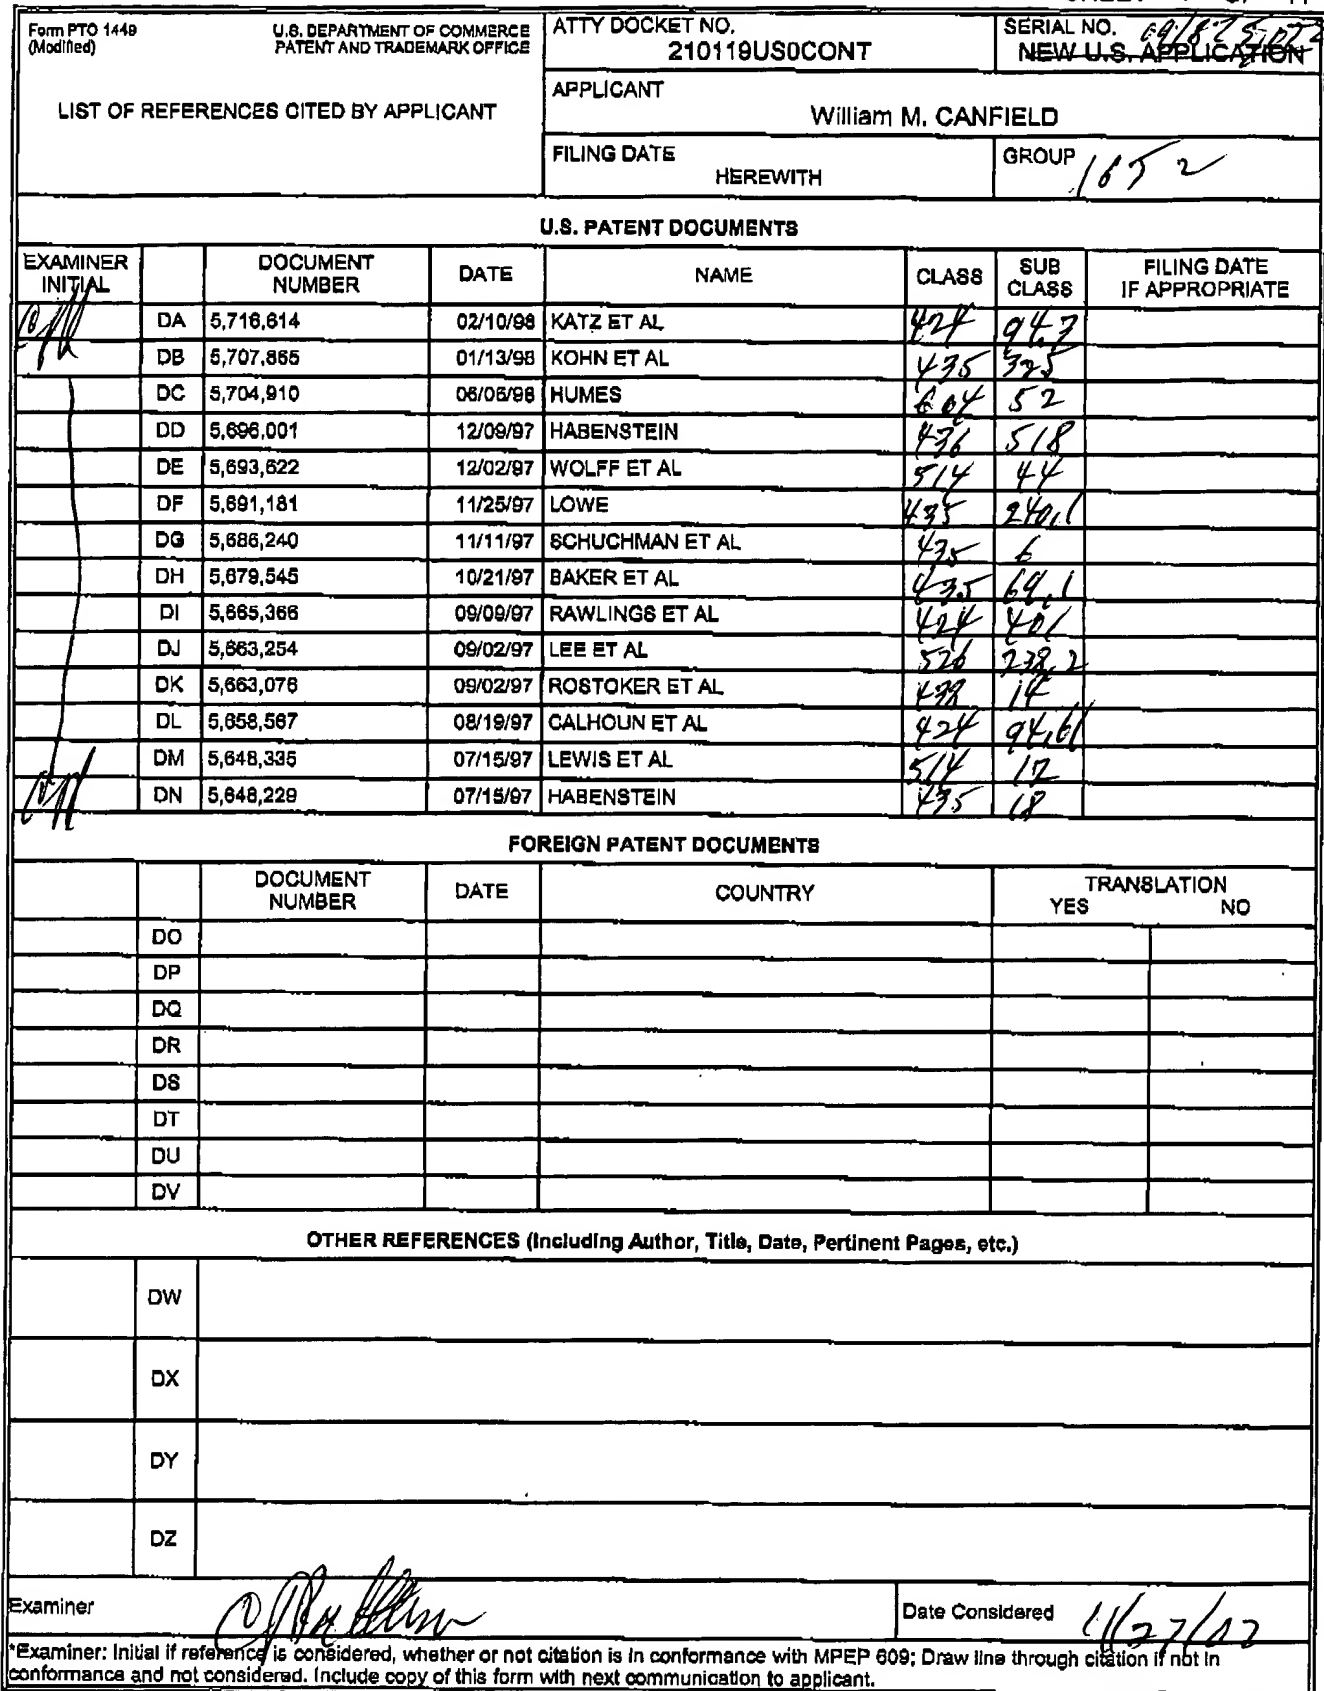 Form PTO 1449 U.S. DEPARTMENT OF COMMERCE
(Modified) PATENT AND TRADEMARK OFFICE
LIST OF REFERENCES CITED BY APPLICANT
ATTY DOCKET NO.
210119US0CONT
SERIAL NO.
NEW U.S. APPLICATION
APPLICANT
William M. CANFIELD
FILING DATE
HEREWITH
GROUP 1652
U.S. PATENT DOCUMENTS
EXAMINER INITIAL DOCUMENT NUMBER DATE NAME CLASS SUB CLASS FILING DATE IF APPROPRIATE
DA 5,716,614 02/10/98 KATZ ET AL 424 94.3
DB 5,707,865 01/13/98 KOHN ET AL 435 325
DC 5,704,910 06/06/98 HUMES 604 52
DD 5,696,001 12/09/97 HABENSTEIN 436 518
DE 5,693,622 12/02/97 WOLFF ET AL 514 44
DF 5,691,181 11/25/97 LOWE 435 240.1
DG 5,686,240 11/11/97 SCHUCHMAN ET AL 435 6
DH 5,679,545 10/21/97 BAKER ET AL 435 69.1
DI 5,665,366 09/09/97 RAWLINGS ET AL 424 401
DJ 5,663,254 09/02/97 LEE ET AL 526 238.2
DK 5,663,076 09/02/97 ROSTOKER ET AL 438 14
DL 5,658,567 08/19/97 CALHOUN ET AL 424 94.61
DM 5,648,335 07/15/97 LEWIS ET AL 514 17
DN 5,648,229 07/15/97 HABENSTEIN 435 18
FOREIGN PATENT DOCUMENTS
DOCUMENT NUMBER DATE COUNTRY TRANSLATION YES NO
DO
DP
DQ
DR
DS
DT
DU
DV
OTHER REFERENCES (Including Author, Title, Date, Pertinent Pages, etc.)
DW
DX
DY
DZ
Examiner
Date Considered
*Examiner: Initial if reference is considered, whether or not citation is in conformance with MPEP 609; Draw line through citation if not in
conformance and not considered. Include copy of this form with next communication to applicant.